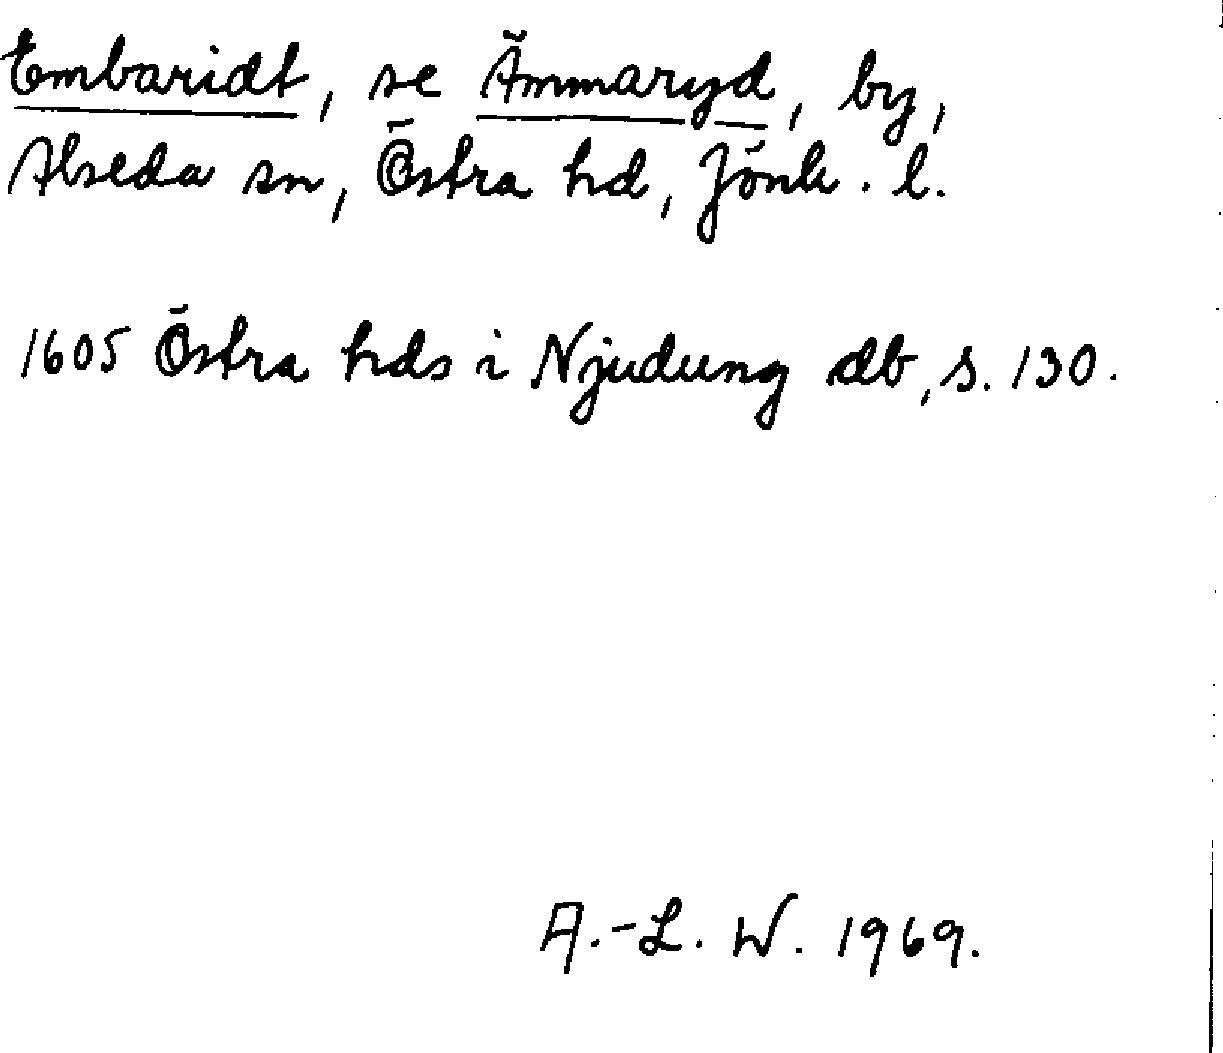 Embaridt, se Ämmaryd, by,
Alseda sn, Östra hd, Jönk. l.
1605 Östra hds i Njudung db, s. 130.
A.-L. W. 1969.